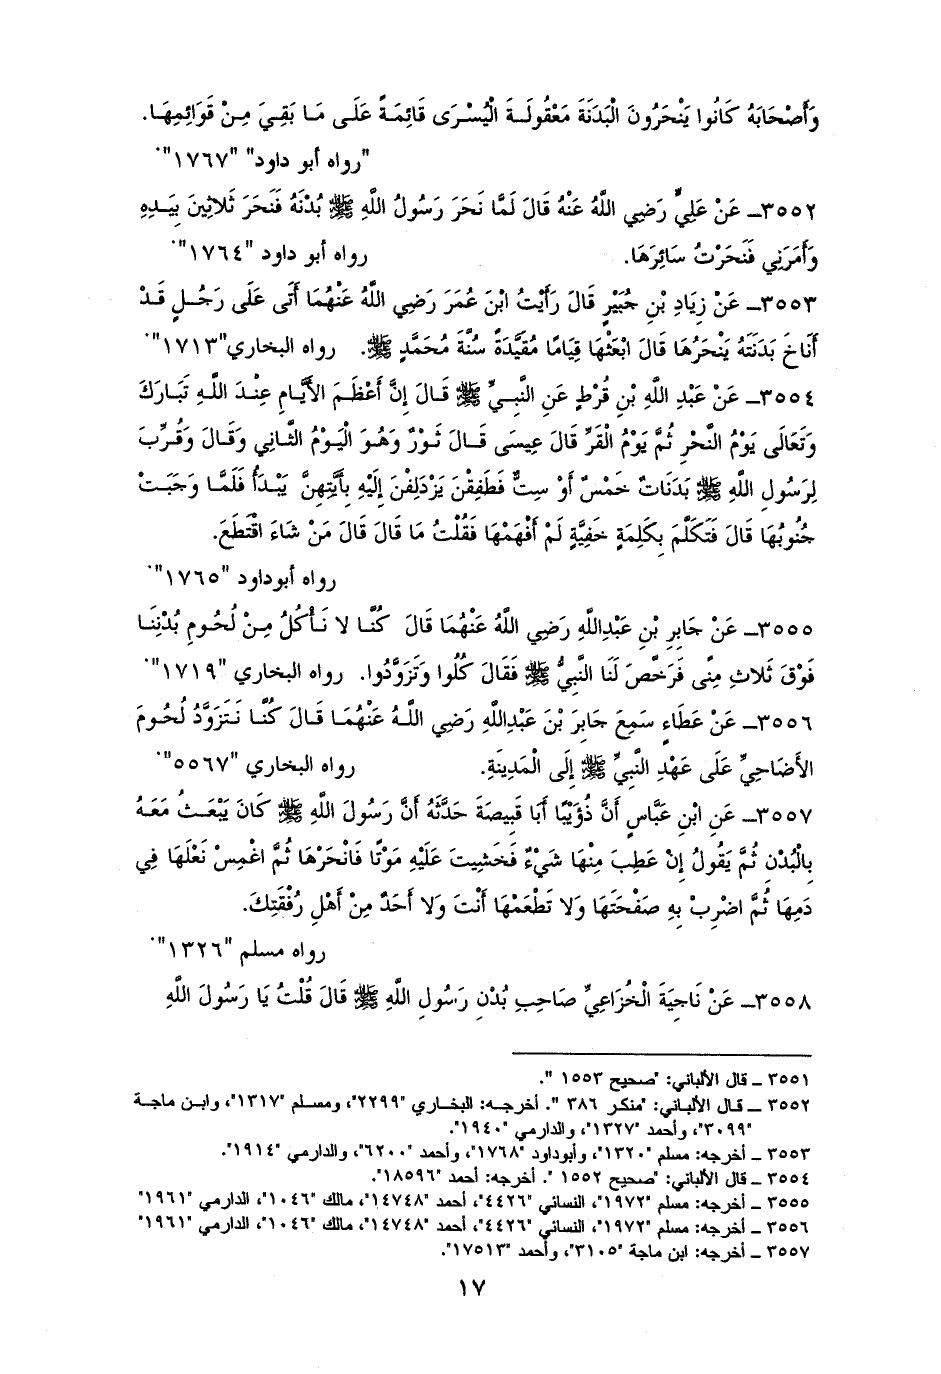 وَأَصْحَابَهُ كَانُوا يَنْحَرُونَ الْبَدَنَةَ مَعْقُولَـةَ الْيُسْرَى قَائِمَةً عَلَـى مَـا بَقِـيَ مِـنْ قَوَائِمِهَـا.
"رواه أبو داود" "١٧٦٧".
٣٥٥٢ـ عَنْ عَلِيٍّ رَضِي اللَّهُ عَنْهُ قَالَ لَمَّا نَحَرَ رَسُولُ اللَّهِ ﷺ بُدْنَهُ فَنَحَرَ ثَلاثِينَ بِيَـدِهِ
وَأَمَرَنِي فَنَحَرْتُ سَائِرَهَا. رواه أبو داود "١٧٦٤".
٣٥٥٣ـ عَنْ زِيَادِ بْنِ جُبَيْرٍ قَالَ رَأَيْتُ ابْنَ عُمَرَ رَضِي اللَّهُ عَنْهُمَا أَتَى عَلَى رَجُـلٍ قَـدْ
أَنَاخَ بَدَنَتَهُ يَنْحَرُهَا قَالَ ابْعَثْهَا قِيَامًا مُقَيَّدَةً سُنَّةَ مُحَمَّدٍ ﷺ. رواه البخاري"١٧١٣".
٣٥٥٤ـ عَنْ عَبْدِ اللَّهِ بْنِ قُرْطٍ عَنِ النَّبِـيِّ ﷺ قَـالَ إِنَّ أَعْظَـمَ الأَيَّـامِ عِنْـدَ اللَّـهِ تَبَارَكَ
وَتَعَالَى يَوْمُ النَّحْرِ ثُمَّ يَوْمُ الْقَرِّ قَالَ عِيسَى قَـالَ ثَـوْرٌ وَهُـوَ الْيَـوْمُ الثَّـانِي وَقَـالَ وَقُـرِّبَ
لِرَسُولِ اللَّهِ ﷺ بَدَنَاتٌ خَمْسٌ أَوْ سِتٌّ فَطَفِقْنَ يَزْدَلِفْنَ إِلَيْهِ بِأَيَّتِهِنَّ يَبْدَأُ فَلَمَّـا وَجَبَـتْ
جُنُوبُهَا قَالَ فَتَكَلَّمَ بِكَلِمَةٍ خَفِيَّةٍ لَمْ أَفْهَمْهَا فَقُلْتُ مَا قَالَ قَالَ مَنْ شَاءَ اقْتَطَعَ.
رواه أبوداود "١٧٦٥".
٣٥٥٥ـ عَنْ جَابِرِ بْنِ عَبْدِاللَّهِ رَضِي اللَّهُ عَنْهُمَا قَالَ كُنَّـا لا نَـأْكُلُ مِـنْ لُحُـومِ بُدْنِنَـا
فَوْقَ ثَلاثِ مِنًى فَرَخَّصَ لَنَا النَّبِيُّ ﷺ فَقَالَ كُلُوا وَتَزَوَّدُوا. رواه البخاري "١٧١٩".
٣٥٥٦ـ عَنْ عَطَاءٍ سَمِعَ جَابِرَ بْنَ عَبْدِاللَّهِ رَضِي اللَّـهُ عَنْهُمَـا قَـالَ كُنَّـا نَـتَزَوَّدُ لُحُـومَ
الأَضَاحِيِّ عَلَى عَهْدِ النَّبِيِّ ﷺ إِلَى الْمَدِينَةِ. رواه البخاري "٥٥٦٧".
٣٥٥٧ـ عَنِ ابْنِ عَبَّاسٍ أَنَّ ذُؤَيْبًا أَبَا قَبِيصَةَ حَدَّثَهُ أَنَّ رَسُولَ اللَّهِ ﷺ كَانَ يَبْعَـثُ مَعَـهُ
بِالْبُدْنِ ثُمَّ يَقُولُ إِنْ عَطِبَ مِنْهَا شَيْءٌ فَخَشِيتَ عَلَيْهِ مَوْتًا فَانْحَرْهَا ثُمَّ اغْمِسْ نَعْلَهَا فِي
دَمِهَا ثُمَّ اضْرِبْ بِهِ صَفْحَتَهَا وَلا تَطْعَمْهَا أَنْتَ وَلا أَحَدٌ مِنْ أَهْلِ رُفْقَتِكَ.
رواه مسلم "١٣٢٦".
٣٥٥٨ـ عَنْ نَاجِيَةَ الْخُزَاعِيِّ صَاحِبِ بُدْنِ رَسُولِ اللَّهِ ﷺ قَالَ قُلْتُ يَا رَسُولَ اللَّهِ
٣٥٥١ ـ قال الألباني: "صحيح ١٥٥٣ ".
٣٥٥٢ ـ قـال الألباني: "منكر ٣٨٦ ". أخرجـه: البخاري "٢٢٩٩"، ومسلم "١٣١٧"، وابـن ماجـة
"٣٠٩٩"، وأحمد "١٣٢٧"، والدارمي "١٩٤٠".
٣٥٥٣ ـ أخرجه: مسلم "١٣٢٠"، وأبوداود "١٧٦٨"، وأحمد "٦٢٠٠"، والدارمي "١٩١٤".
٣٥٥٤ ـ قال الألباني: "صحيح ١٥٥٢ ". أخرجه: أحمد "١٨٥٩٦".
٣٥٥٥ ـ أخرجه: مسلم "١٩٧٢"، النسائي "٤٤٢٦"، أحمد "١٤٧٤٨"، مالك "١٠٤٦"، الدارمي "١٩٦١"
٣٥٥٦ ـ أخرجه: مسلم "١٩٧٢"، النسائي "٤٤٢٦"، أحمد "١٤٧٤٨"، مالك "١٠٤٦"، الدارمي "١٩٦١"
٣٥٥٧ ـ أخرجه: ابن ماجة "٣١٠٥"، وأحمد "١٧٥١٣".
١٧